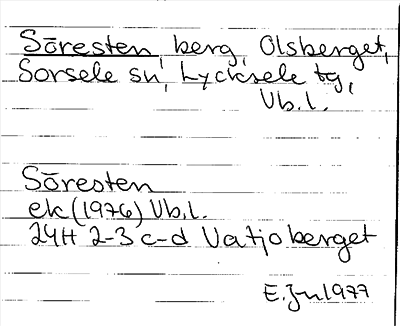 Söresten, berg, Olsberget,
Sorsele sn, Lycksele tg,
Vb.l.
Söresten
ek (1976) Vb.l.
24H 2-3 c-d Vatjoberget
E. Ju 1977